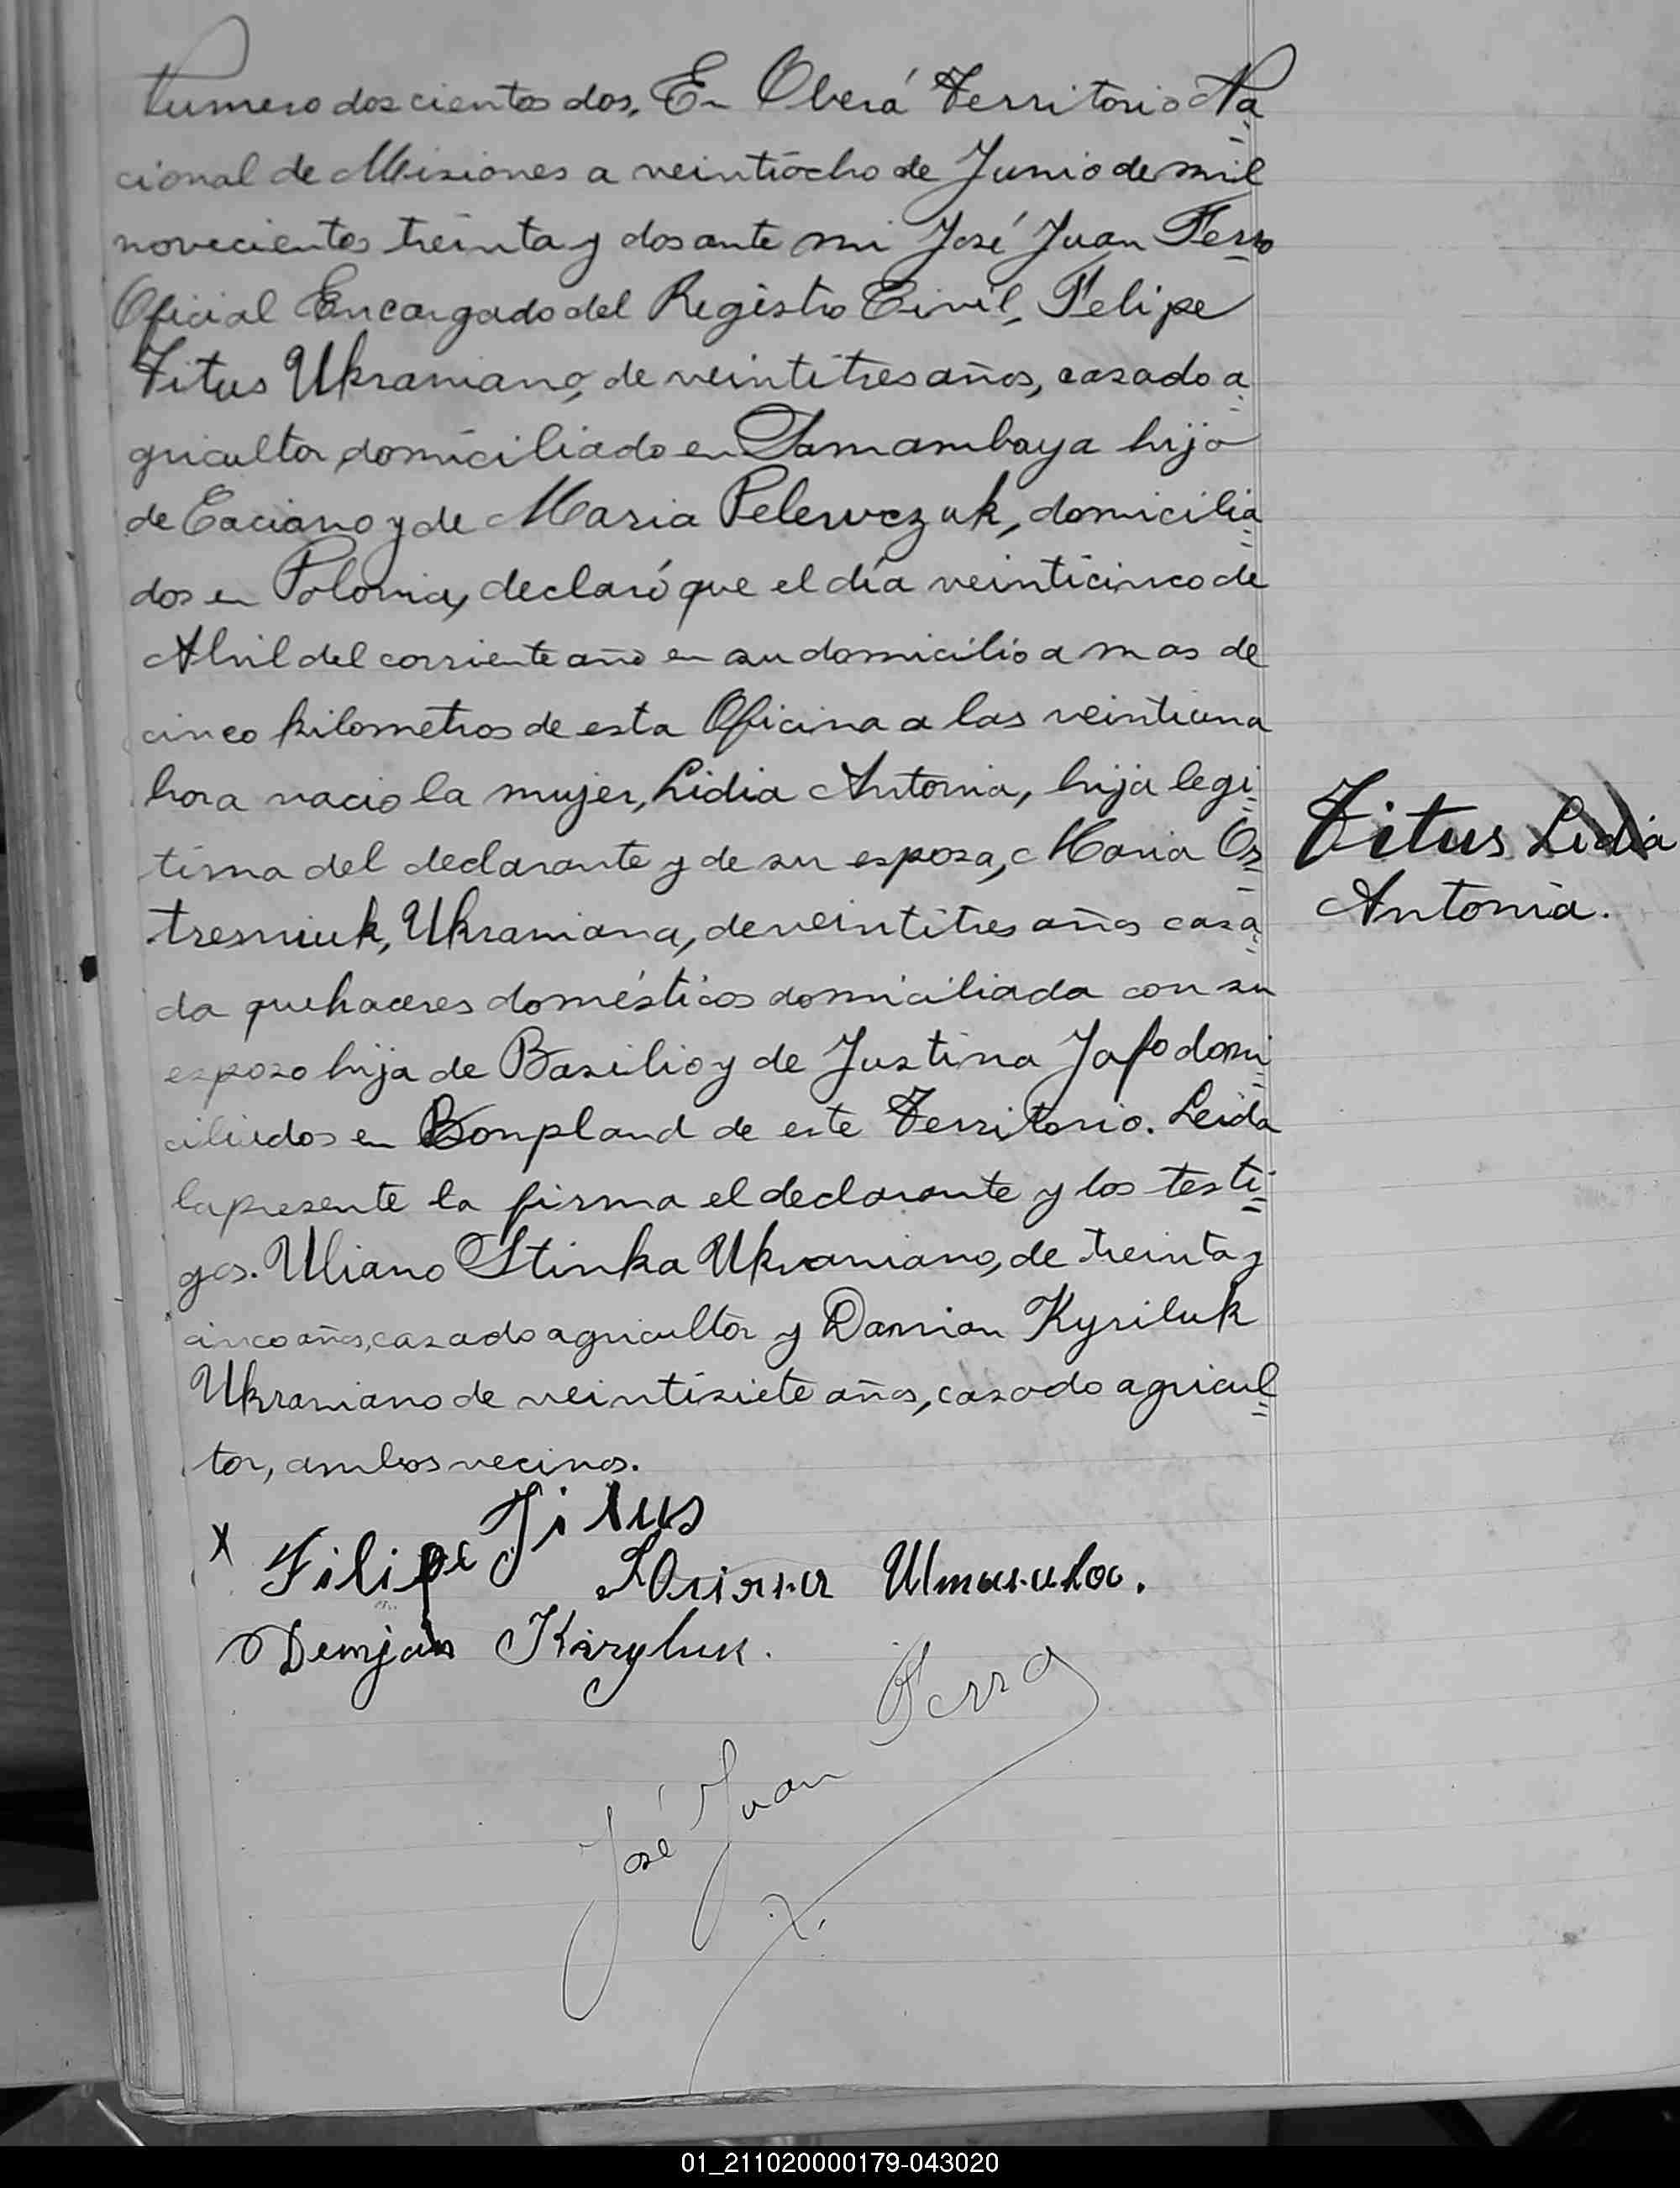 Numero doscientos dos. En Oberá Territorio Na
cional de Misiones a veintiocho de Junio de mil
novecientos treinta y dos ante mi José Juan Ferro
Oficial Encargado del Registro Civil, Felipe
Titus Ukraniano, de veintitres años, casado a
gricultor domiciliado en Samambaya hijo
de Caciano y de Maria Pelewczuk, domicilia
dos en Polonia, declaró que el día veinticinco de
Abril del corriente año en su domicilio a mas de
cinco kilometros de esta Oficina a las veintiuna
hora nacio la mujer, Lidia Antonia, hija legi
tima del declarante y de su esposa, Maria Os
tresniuk, Ukraniana, de veintitres años casa
da quehaceres domésticos domiciliada con su
esposo hija de Basilio y de Justina Jafo domi
ciliados en Bonpland de este Territorio. Leida
la presente la firma el declarante y los testi
gos. Uliano Stinka Ukraniano, de treinta y
cinco años, casado agricultor y Damian Kyriluk
Ukraniano de veintisiete años, casado agricul
tor, ambos vecinos.
Titus Lidia
Antonia.
x Filipe Titus
Demjan Kiryluk.
José Juan Ferro
01_211020000179-043020